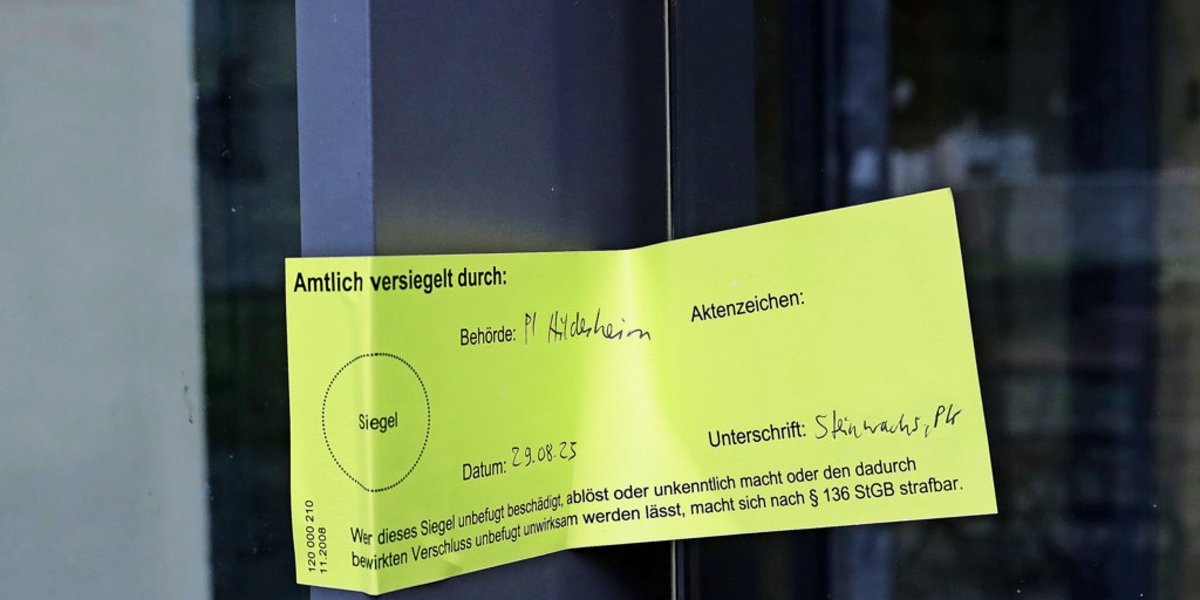 Amtlich versiegelt durch:
Behörde: PI Hildesheim
Aktenzeichen:
Siegel
Datum: 29.08.25
Unterschrift: Steinwachs, PK
Wer dieses Siegel unbefugt beschädigt, ablöst oder unkenntlich macht oder den dadurch
bewirkten Verschluss unbefugt unwirksam werden lässt, macht sich nach § 136 StGB strafbar.
120 000 210
11.2008